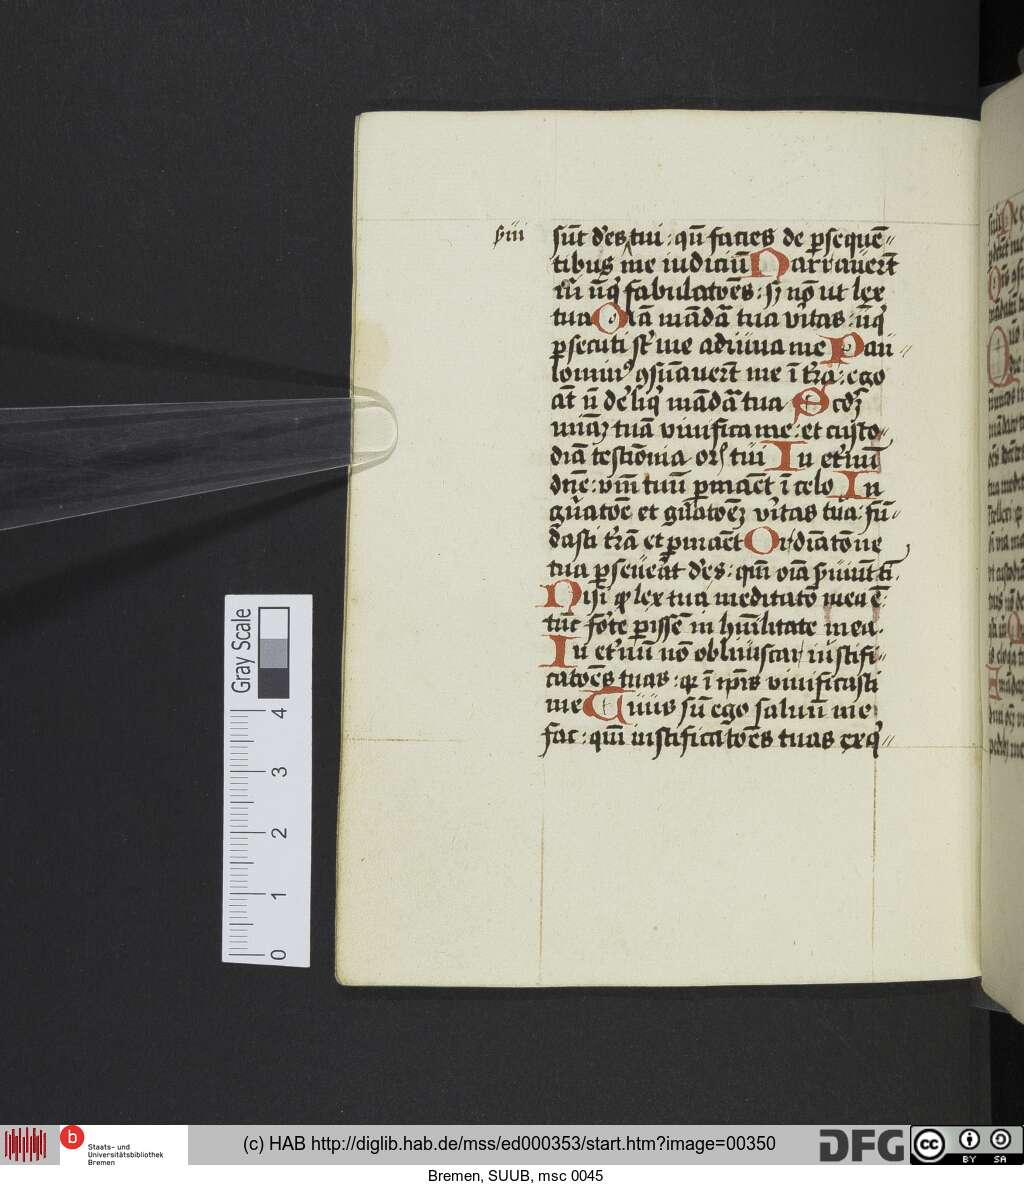 s̄uii
sūt d'es tui : qn̄ facies de ꝑsequē
tibus me iudiciū Narrauert̄
m̄ inq̄ fabulatōes : sꝫ nō ut lex
tua Oīa mādāta tua vītas : inq̄
ꝑsecuti st̄ me adiuua me Pau
lominꝰ ꝯsūauert̄ me ī tr̄a : ego
āt n̄ de'liq̄ mādāta tua Scd'ꝫ
mīaꝫ tuā viuifica me : et custo
diā testiōnia oris tui In et'nū
dn̄e : vm̄ tuū ꝑmaēt ī celo In
gn̄atōe et gn̄atōeꝫ vītas tua : fū
dasti tr̄ā et ꝑmaēt Ordiatōne
tua ꝑseuēat d'es : qm̄ oīa s̄uiūt t'
Nisi ꝙ lex tua meditatō mea ē :
tūc fōte ꝑissē in hūilitate mea
In et'nū nō obliuiscar iustifi
catōes tuas : qꝛ ī ip̄is viuificasti
me Tuus sū ego saluū me
fac : qm̄ iustificatōes tuas exq̄
Gray Scale
4
3
2
1
0
Staats- und
Universitätsbibliothek
Bremen
(c) HAB http://diglib.hab.de/mss/ed000353/start.htm?image=00350
DFG
cc
BY SA
Bremen, SUUB, msc 0045